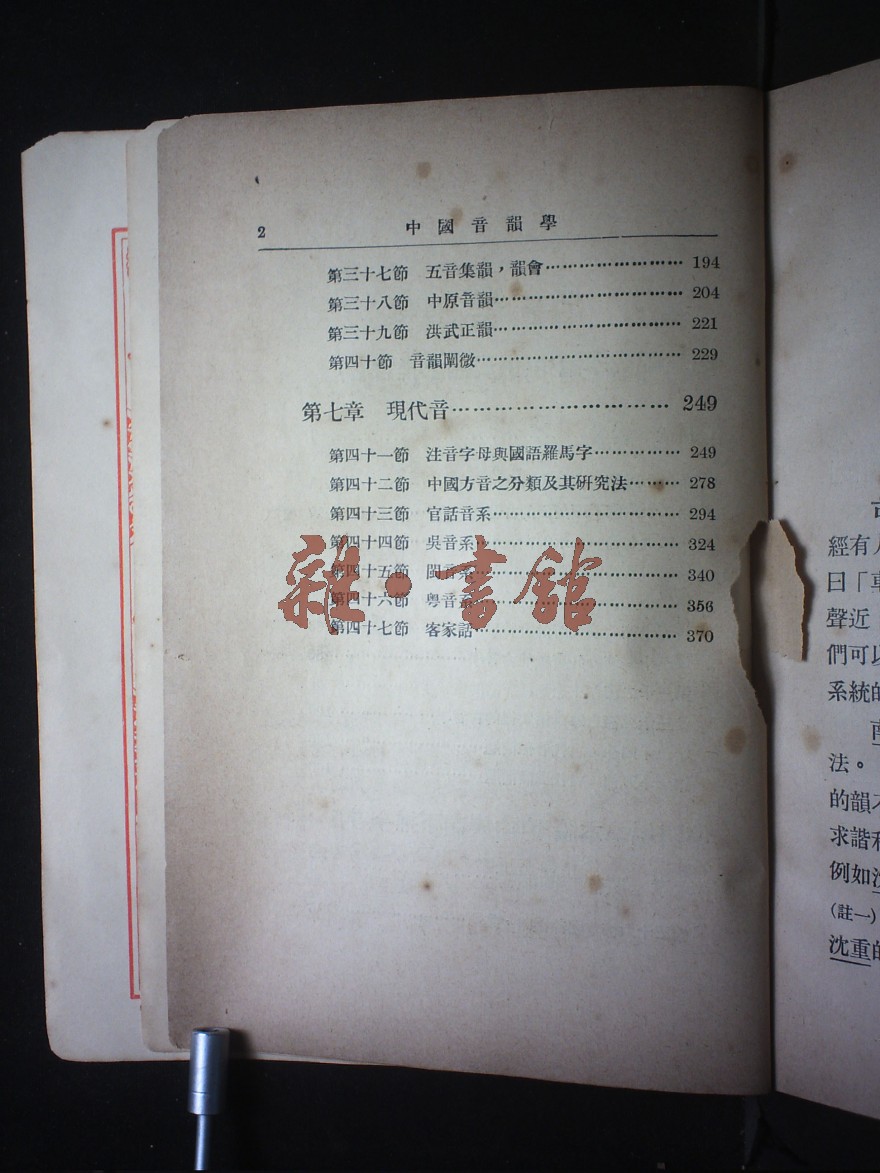 2 中國音韻學
第三十七節 五音集韻，韻會…………………… 194
第三十八節 中原音韻…………………………… 204
第三十九節 洪武正韻…………………………… 221
第四十節 音韻闡微……………………………… 229
第七章 現代音………………………… 249
第四十一節 注音字母與國語羅馬字…………… 249
第四十二節 中國方音之分類及其研究法……… 278
第四十三節 官話音系…………………………… 294
第四十四節 吳音系……………………………… 324
第四十五節 閩音系……………………………… 340
第四十六節 粵音系……………………………… 356
第四十七節 客家話……………………………… 370
雜·書館
經有
曰「
聲近
們可以
系統的
法。
的韻
求諧
例如
(註一)
沈重的